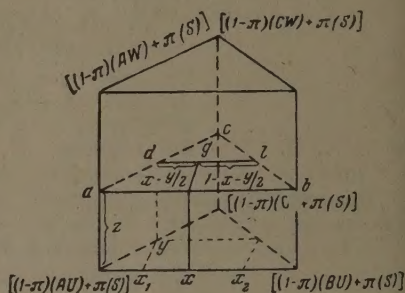 [(1-π)(AW)+π(S)]
[(1-π)(CW)+π(S)]
c
d g l
a x-y/2 1-x-y/2 b
z
[(1-π)(C +π(S)]
y
[(1-π)(AU)+π(S)] x₁ x x₂ [(1-π)(BU)+π(S)]